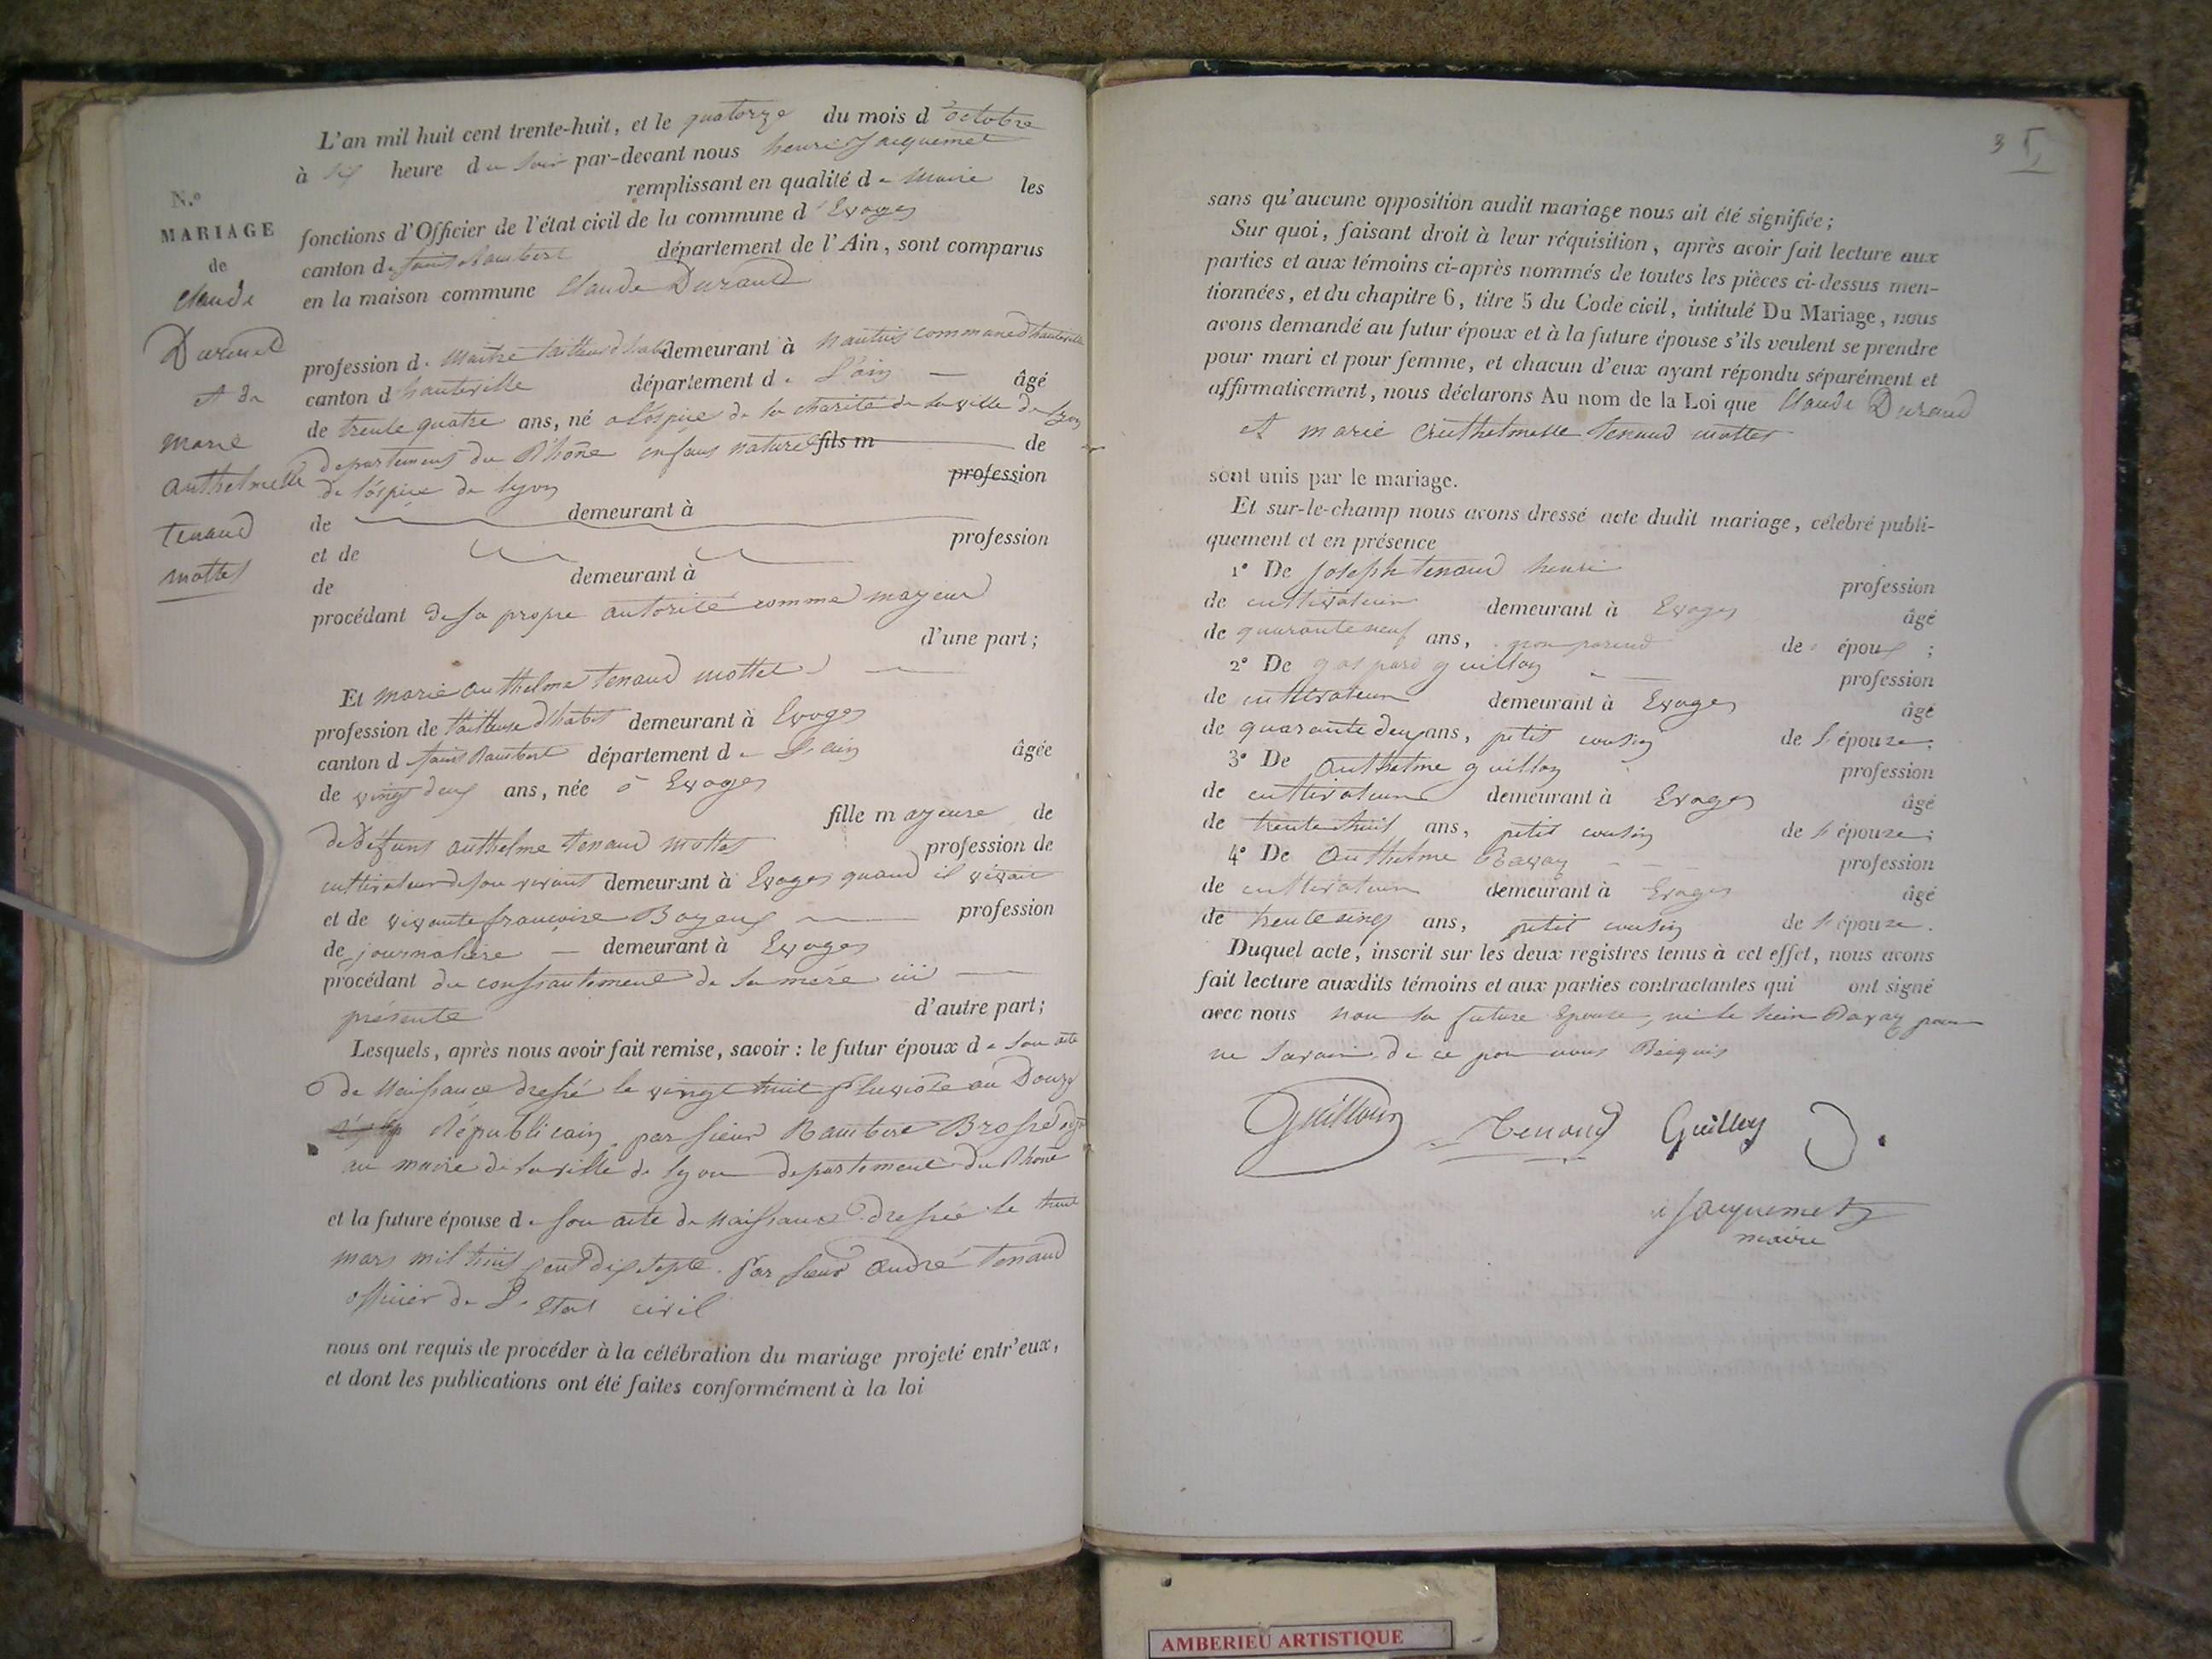 L'an mil huit cent trente-huit, et le quatorze du mois d'octobre
à six heure du soir par-devant nous henri Jacquemet
remplissant en qualité de Maire les
fonctions d'Officier de l'état civil de la commune d'Evoges
canton de saint Rambert département de l'Ain, sont comparus
en la maison commune Claude Durand
N.º
MARIAGE
de
Claude
Durand
et de
marie
anthelmette
tenand
mottet
profession de Maitre tailleur d'habit demeurant à nantuis commune d'hauteville
canton d'hauteville département de L'ain — âgé
de trente quatre ans, né a l'ospice de la charité de la ville de lyon
departement du Rhône enfans naturel fils m de
de l'ospice de lyon profession
de demeurant à
et de profession
de demeurant à
procédant de sa propre autorité comme majeur
d'une part;
Et marie anthelme tenand mottet
profession de tailleuse d'habit demeurant à Evoges
canton d saint Rambert département de L'ain âgée
de vingt deux ans, née à Evoges
fille mayeure de
de défunt anthelme tenand mottet profession de
cultivateur de son vivant demeurant à Evoges quand il vivait
et de vivante françoise Bozeux profession
de journalière — demeurant à Evoges
procédant du consantement de sa mère ici
présente d'autre part;
Lesquels, après nous avoir fait remise, savoir : le futur époux de son acte
de Naissance dressé le vingt huit pluviôse an Douze
Républicain par sieur Rambert Brosse
au mairie de la ville de lyon departement du Rhone
et la future épouse de son acte de Naissance dressée le huit
mars mil huit cent dix sept. Par sieur André tenand
officier de L'Etat civil
nous ont requis de procéder à la célébration du mariage projeté entr'eux,
et dont les publications ont été faites conformément à la loi
3
sans qu'aucune opposition audit mariage nous ait été signifiée;
Sur quoi, faisant droit à leur réquisition, après avoir fait lecture aux
parties et aux témoins ci-après nommés de toutes les pièces ci-dessus men-
tionnées, et du chapitre 6, titre 5 du Code civil, intitulé Du Mariage, nous
avons demandé au futur époux et à la future épouse s'ils veulent se prendre
pour mari et pour femme, et chacun d'eux ayant répondu séparément et
affirmativement, nous déclarons Au nom de la Loi que Claude Durand
et marie Anthelmette tenand mottet
sont unis par le mariage.
Et sur-le-champ nous avons dressé acte dudit mariage, célébré publi-
quement et en présence
1º De Joseph tenand henri profession
de cultivateur demeurant à Evoges âgé
de quarante neuf ans, non parend de époux ;
2º De gaspard guilloy profession
de cultivateur demeurant à Evoges âgé
de quarante deux ans, petit cousin de L'épouze;
3º De Anthelme guilloy profession
de cultivateur demeurant à Evoges âgé
de trente huit ans, petit cousin de L'épouze;
4º De Anthelme Ravay profession
de cultivateur demeurant à Evoges âgé
de trente cinq ans, petit cousin de L'épouze.
Duquel acte, inscrit sur les deux registres tenus à cet effet, nous avons
fait lecture auxdits témoins et aux parties contractantes qui ont signé
avec nous non la future Epouse, ni le sieur Ravay pour
ne savoir de ce par nous Réquis
Guilloy Tenand Guilloy D.
Jacquemet
maire
AMBERIEU ARTISTIQUE